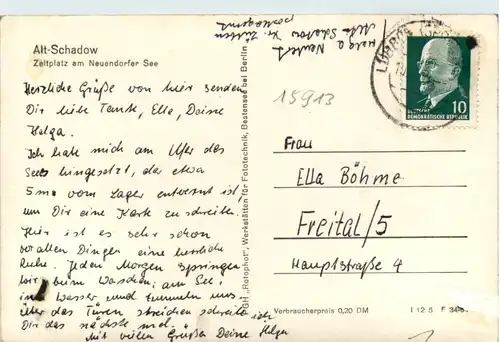 Alt-Schadow
Zeltplatz am Neuendorfer See
Herzliche Grüße von hier senden
Dir liebe Tante, Ella, Deine
Helga.
Ich habe mich am Ufer des
Sees hingesetzt, das etwa
5 m vom Lager entfernt ist
um Dir eine Karte zu schreiben.
Hier ist es sehr schön
vor allen Dingen eine herrliche
Ruhe. Jeden Morgen springen
wir beim Waschen am See,
ins Wasser und tummeln uns.
Über das Türen streichen schreibe ich
Dir das nächste mal.
Mit vielen Grüßen Deine Helga
Helga
Alt Schadow Kr. Lübben
postlagernd
GH „Rotophot", Werkstätten für Fototechnik, Bestensee bei Berlin
15913
LÜBBEN
DEUTSCHE
DEMOKRATISCHE REPUBLIK
10
Frau
Ella Böhme
Freital/5
Hauptstraße 4
Verbraucherpreis 0,20 DM
I 12 5